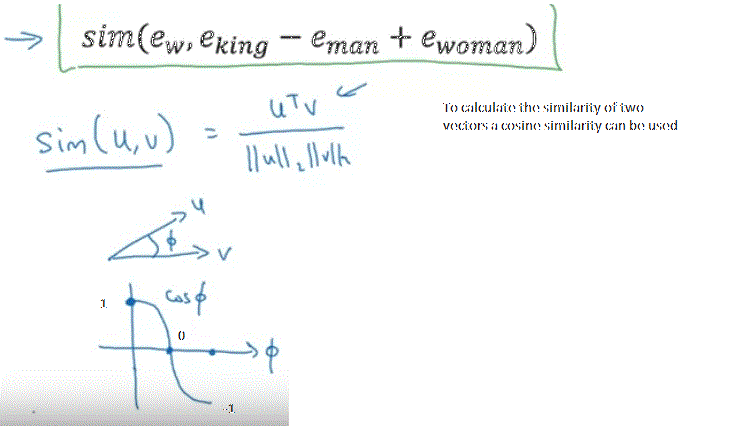 → sim(e_w, e_king − e_man + e_woman)
sim(u,v) = uᵀv / ||u||₂ ||v||₂
To calculate the similarity of two
vectors a cosine similarity can be used
u
ϕ
v
1
cos ϕ
0
ϕ
-1